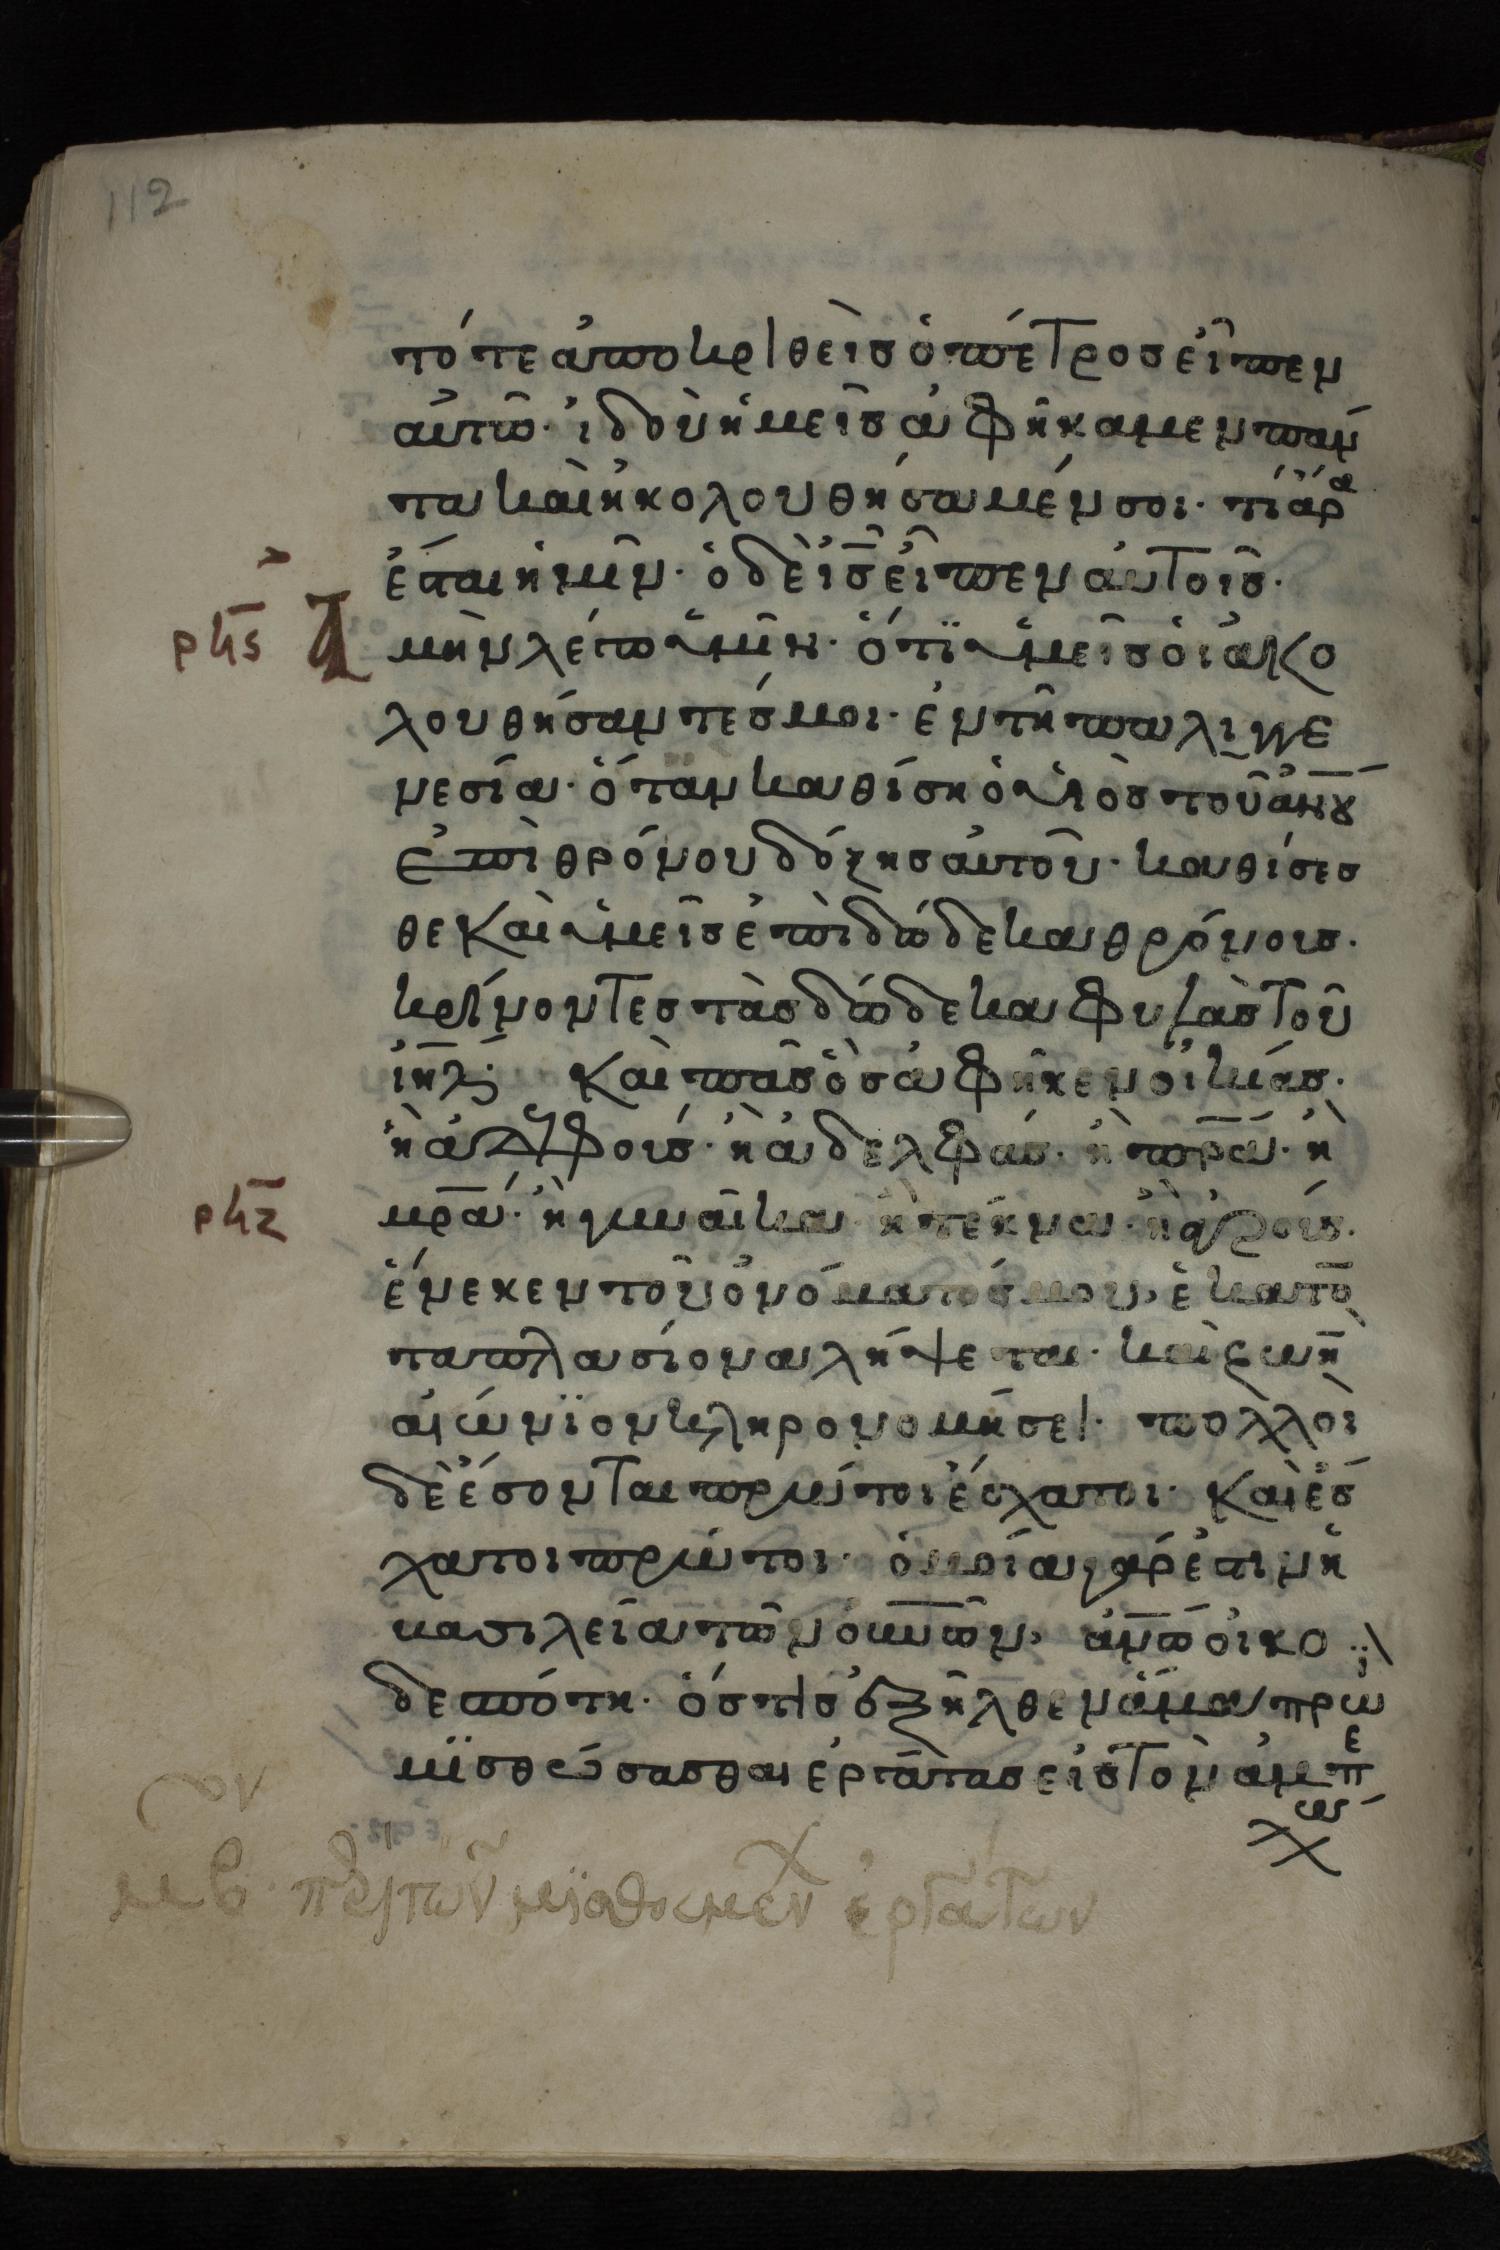 112
τότε ἀποκριθεὶς ὁ πέτρος εἶπεν
αὐτῶ· ἰδοὺ ἡμεῖς ἀφήκαμεν πάν
τα καὶ ἠκολουθήσαμέν σοι· τί ἄρα
ἔσται ἡμῖν· ὁ δὲ ι̅ς̅ εἶπεν αὐτοῖς·
ρ̅ϟ̅ς̅ Ἀ μὴν λέγω ὑμῖν· ὅτι ὑμεῖς οἱ ἀκο
λουθήσαντές μοι· ἐν τῆ παλιγγε
νεσία· ὅταν καθίση ὁ υἱὸς τοῦ α̅ν̅ο̅υ̅
ἐπὶ θρόνου δόξης αὐτοῦ· καθίσεσ
θε καὶ ὑμεῖς ἐπὶ δώδεκα θρόνους·
κρίνοντες τὰς δώδεκα φυλὰς τοῦ
ι̅η̅λ̅· καὶ πᾶς ὃς ἀφῆκεν οἰκίας·
ἢ ἀδελφούς· ἢ ἀδελφάς· ἢ π̅ρ̅α̅· ἢ
ρ̅ϟ̅ζ̅ μ̅ρ̅α̅· ἢ γυναῖκα· ἢ τέκνα· ἢ ἀγρούς·
ἕνεκεν τοῦ ὀνόματός μου, ἑκατον
ταπλασίονα λήψεται· καὶ ζωὴν
αἰώνϊον κληρονομήσει· πολλοὶ
δὲ ἔσονται πρώτοι ἔσχατοι· καὶ ἔσ
χατοι πρώτοι· ὁμοία γάρ ἐστιν ἡ
βασιλεία τῶν ο̅υ̅ν̅ω̅ν̅, α̅ν̅ω̅ οἰκο
δεσπότη· ὅστις ἐξῆλθεν ἅμα πρωῒ
μϊσθώσασθαι ἐργάτας εἰς τὸν ἀμπε
λῶ
μβ· περὶ τῶν μϊσθουμένων ἐργατῶν